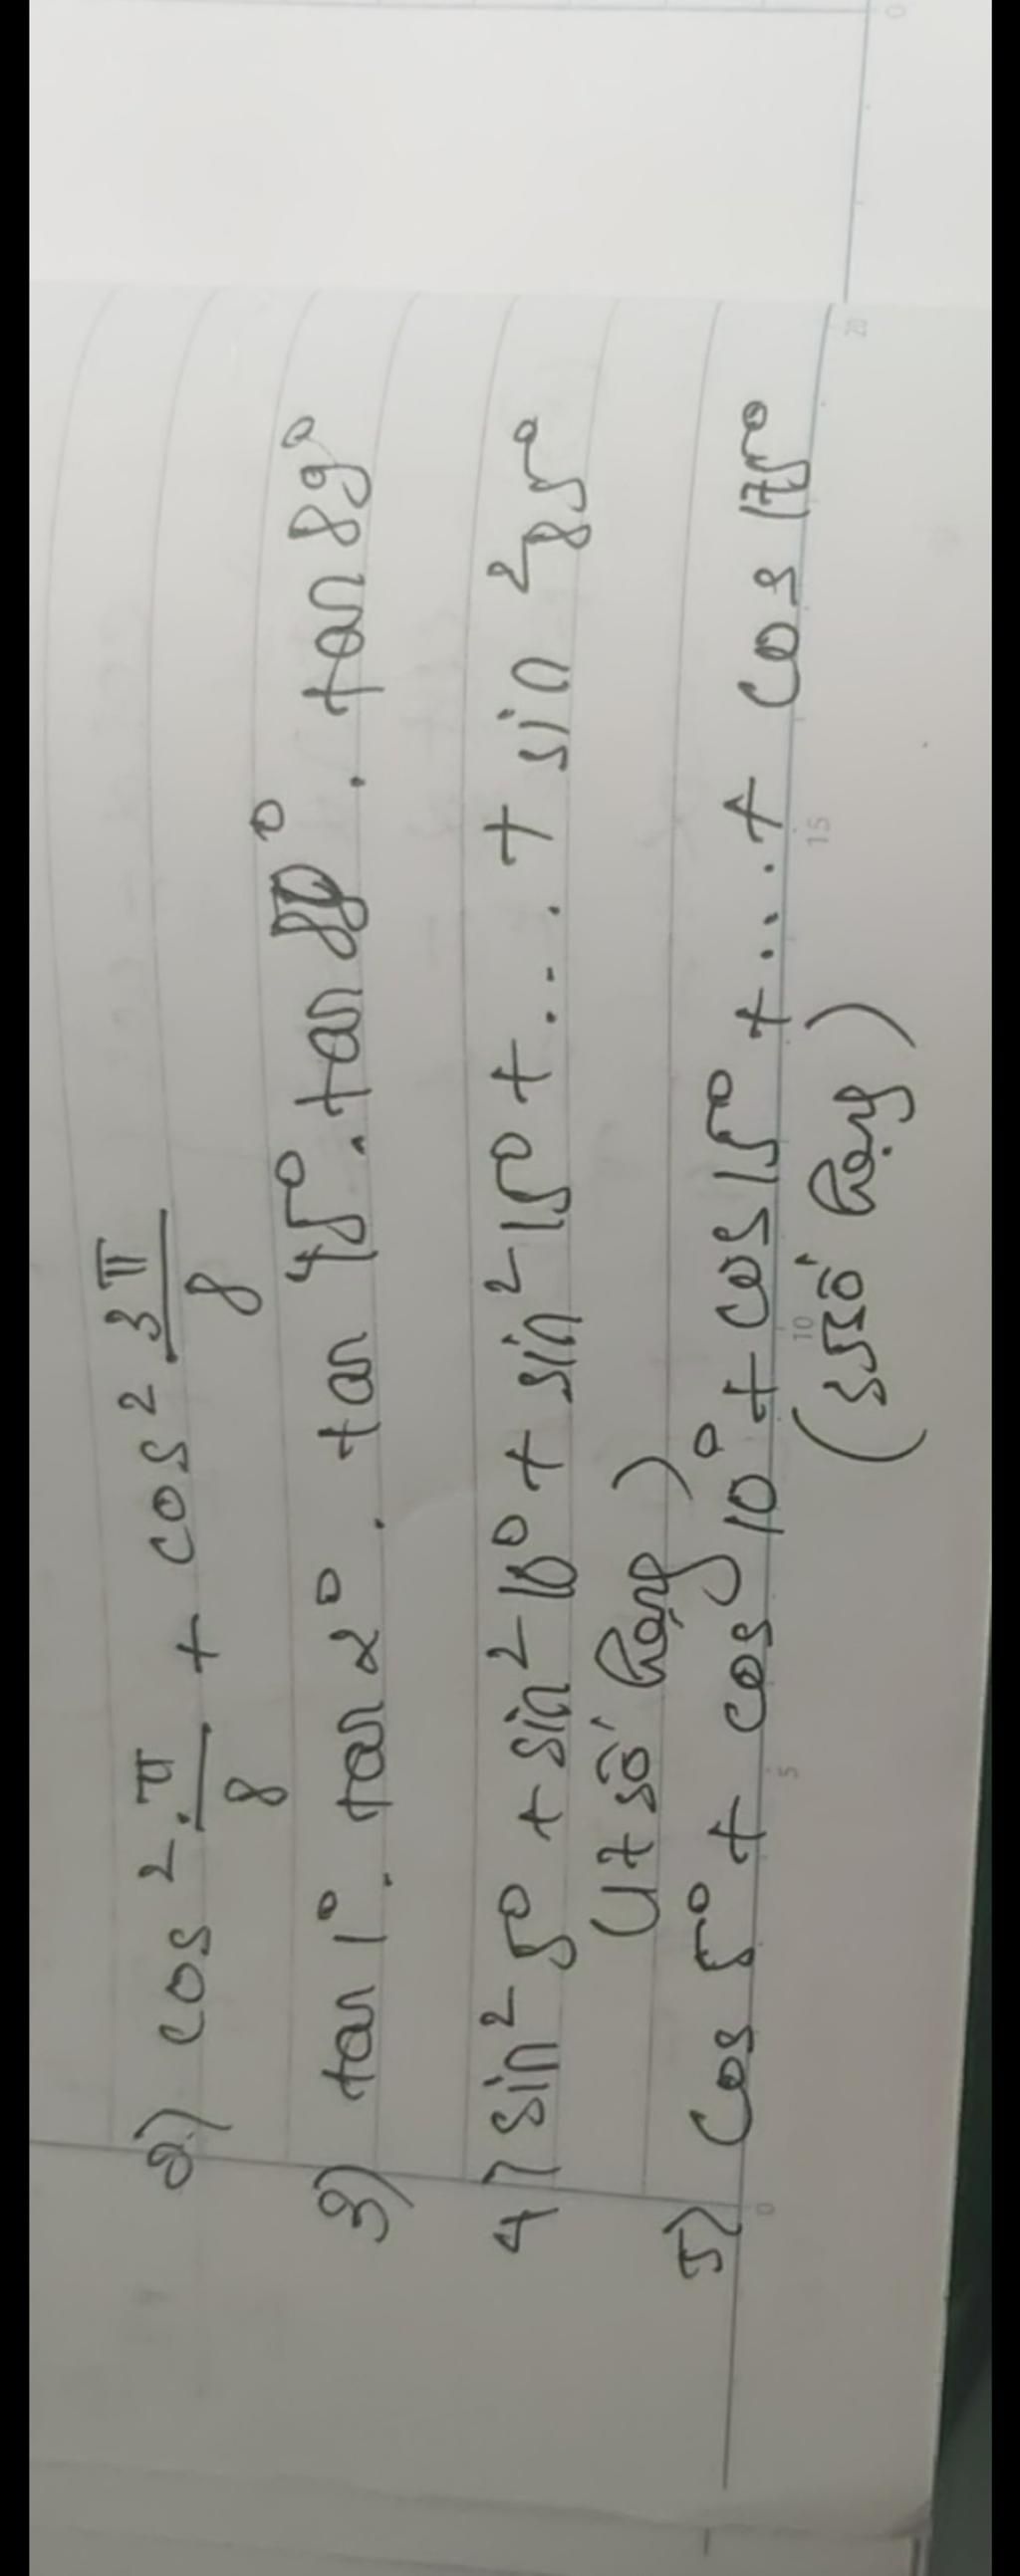 2) cos² π/8 + cos² 3π/8
3) tan 1°. tan 2°. tan 45°. tan 88°. tan 89°
4) sin² 5° + sin² 10° + sin² 15° + ... + sin² 85°
(17 số hạng)
5) cos 5° + cos 10° + cos 15° + .... + cos 175°
(35 số hạng)
0 5 10 15 20
0